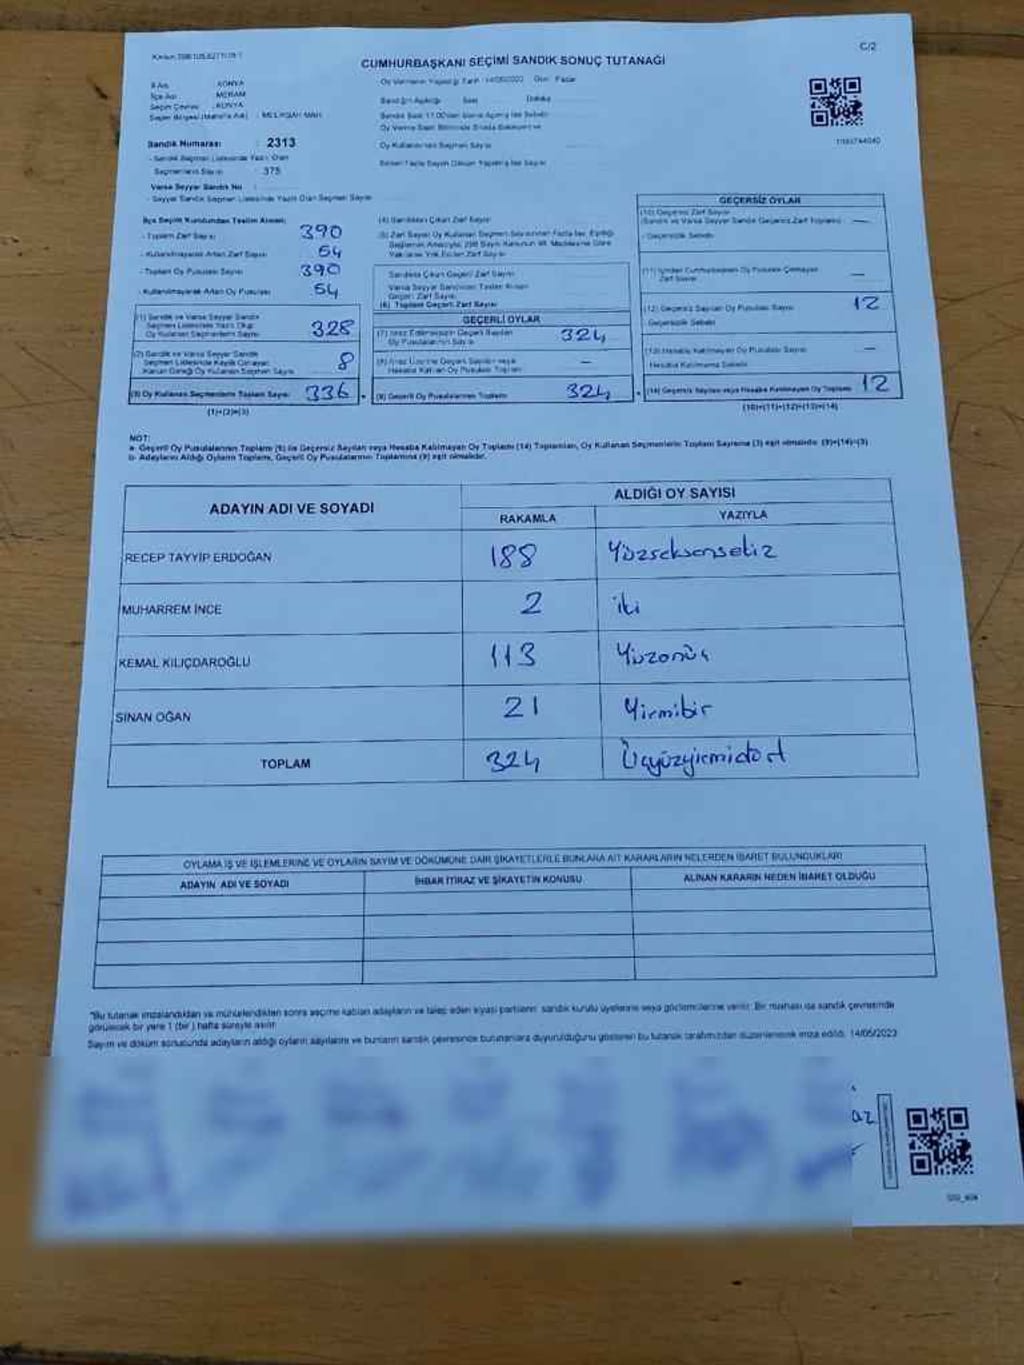 C/2
CUMHURBAŞKANI SEÇİMİ SANDIK SONUÇ TUTANAĞI
Oy Vermenin Yapıldığı Tarih 14/05/2023 Gün Pazar
İl Adı KONYA
İlçe Adı MERAM
Seçim Çevresi KONYA
Seçim Bölgesi (Mahalle Adı) : MELİKŞAH MAH.
Sandık Numarası : 2313
- Sandık Seçmen Listesinde Yazılı Olan
Seçmenlerin Sayısı 375
Varsa Seyyar Sandık No
- Seyyar Sandık Seçmen Listesinde Yazılı Olan Seçmen Sayısı
Sandığın Açıldığı Saat Dakika
İlçe Seçim Kurulundan Teslim Alınan;
- Toplam Zarf Sayısı 390
- Kullanılmayarak Artan Zarf Sayısı 54
- Toplam Oy Pusulası Sayısı 390
- Kullanılmayarak Artan Oy Pusulası 54
(1) Sandık ve Varsa Seyyar Sandık
Seçmen Listesinde Yazılı Olup
Oy Kullanan Seçmenlerin Sayısı 328
(2) Sandık ve Varsa Seyyar Sandık
Seçmen Listesinde Kayıtlı Olmayıp
Kanun Gereği Oy Kullanan Seçmen Sayısı 8
(3) Oy Kullanan Seçmenlerin Toplam Sayısı 336
(1)+(2)=(3)
(4) Sandıktan Çıkan Zarf Sayısı
Sandıkta Çıkan Geçerli Zarf Sayısı
(6) Toplam Geçerli Zarf Sayısı
GEÇERLİ OYLAR
(7) İtiraz Edilmeksizin Geçerli Sayılan
Oy Pusulalarının Sayısı 324
(8) İtiraz Üzerine Geçerli Sayılan veya
Hesaba Katılan Oy Pusulası Toplamı –
(9) Geçerli Oy Pusulalarının Toplamı 324
GEÇERSİZ OYLAR
(10) Geçersiz Zarf Sayısı
(Sandık ve Varsa Seyyar Sandık Geçersiz Zarf Toplamı) —
Geçersizlik Sebebi
(11) İçinden Cumhurbaşkanı Oy Pusulası Çıkmayan
Zarf Sayısı —
(12) Geçersiz Sayılan Oy Pusulası Sayısı 12
Geçersizlik Sebebi
(13) Hesaba Katılmayan Oy Pusulası Sayısı —
Hesaba Katılmama Sebebi
(14) Geçersiz Sayılan veya Hesaba Katılmayan Oy Toplamı 12
(10)+(11)+(12)+(13)=(14)
NOT:
a- Geçerli Oy Pusulalarının Toplamı (9) ile Geçersiz Sayılan veya Hesaba Katılmayan Oy Toplamı (14) Toplamları, Oy Kullanan Seçmenlerin Toplam Sayısına (3) eşit olmalıdır. (9)+(14)=(3)
b- Adayların Aldığı Oyların Toplamı, Geçerli Oy Pusulalarının Toplamına (9) eşit olmalıdır.
ADAYIN ADI VE SOYADI
ALDIĞI OY SAYISI
RAKAMLA YAZIYLA
RECEP TAYYİP ERDOĞAN 188 Yüzseksensekiz
MUHARREM İNCE 2 iki
KEMAL KILIÇDAROĞLU 113 Yüzonüç
SİNAN OĞAN 21 Yirmibir
TOPLAM 324 Üçyüzyirmidört
OYLAMA İŞ VE İŞLEMLERİNE VE OYLARIN SAYIM VE DÖKÜMÜNE DAİR ŞİKAYETLERLE BUNLARA AİT KARARLARIN NELERDEN İBARET BULUNDUKLARI
ADAYIN ADI VE SOYADI İHBAR İTİRAZ VE ŞİKAYETİN KONUSU ALINAN KARARIN NEDEN İBARET OLDUĞU
"Bu tutanak imzalandıktan ve mühürlendikten sonra seçime katılan adayların ve talep eden siyasi partilerin sandık kurulu üyelerine veya gözlemcilerine verilir. Bir nüshası da sandık çevresinde
görülecek bir yere 1 (bir) hafta süreyle asılır.
Sayım ve döküm sonucunda adayların aldığı oyların sayılarını ve bunların sandık çevresinde bulunanlara duyurulduğunu gösteren bu tutanak tarafımızdan düzenlenerek imza edildi. 14/05/2023
az